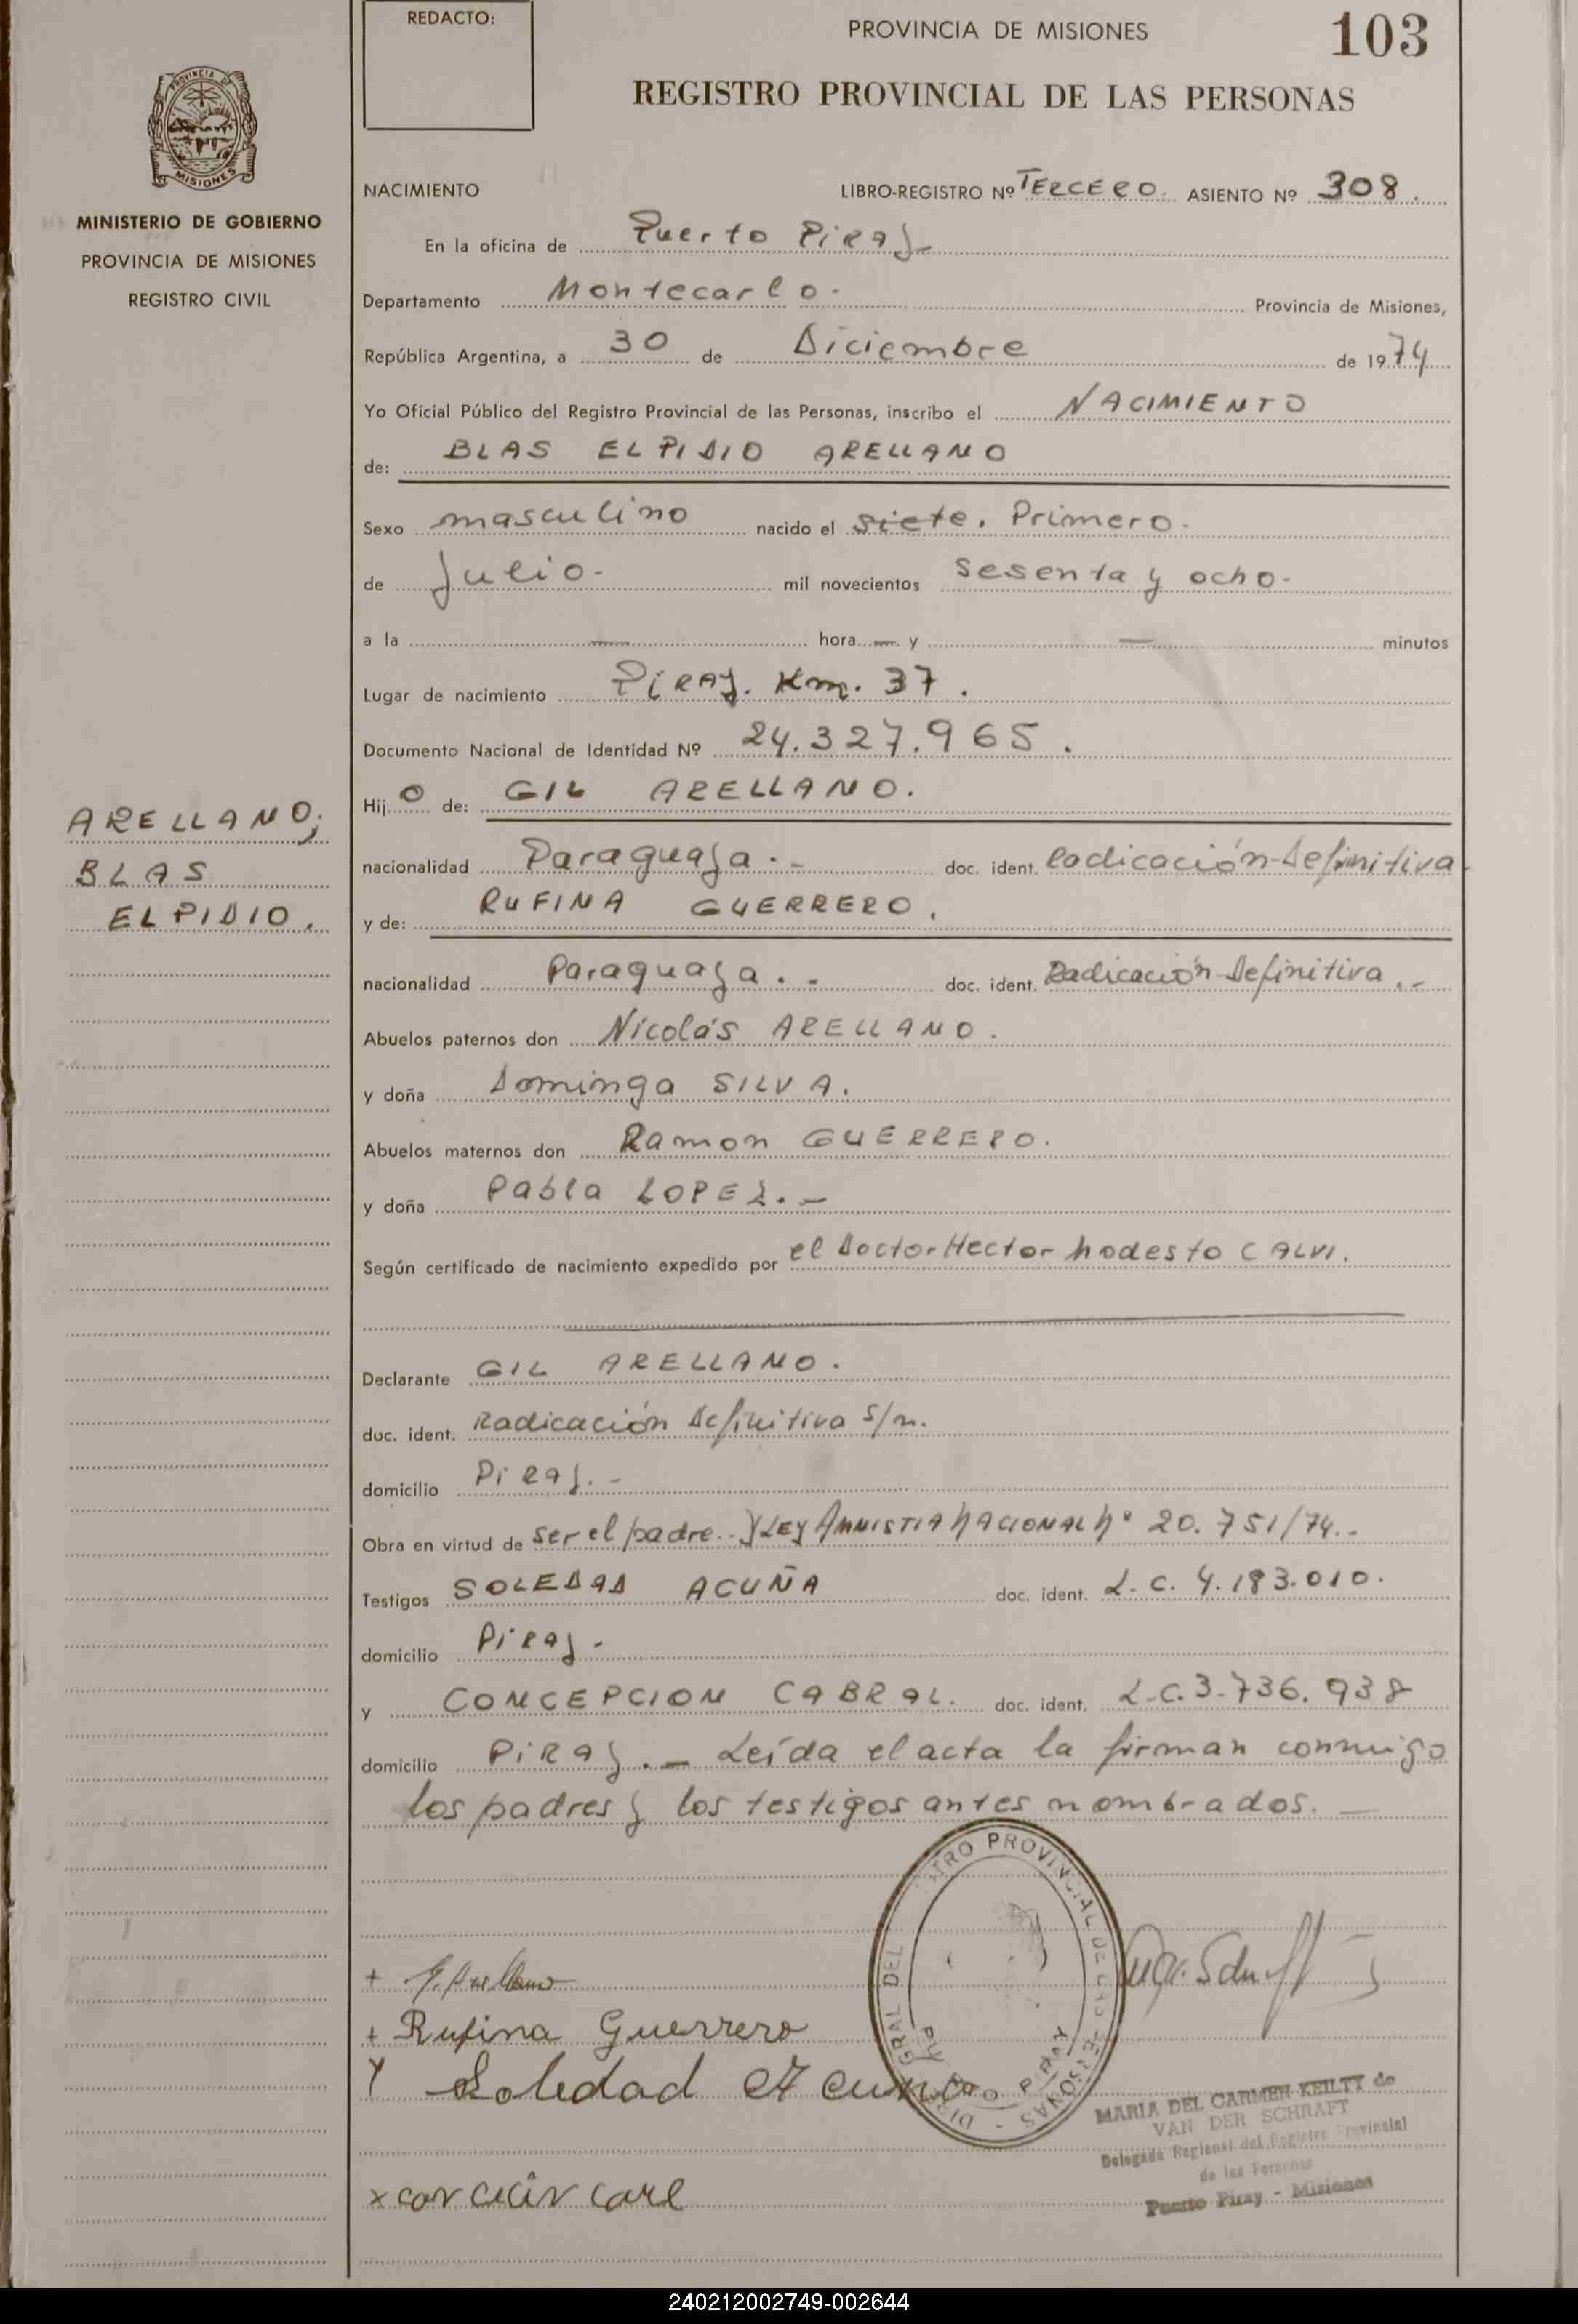 REDACTO:
PROVINCIA DE MISIONES
103
REGISTRO PROVINCIAL DE LAS PERSONAS
PROVINCIA DE
MISIONES
MINISTERIO DE GOBIERNO
PROVINCIA DE MISIONES
REGISTRO CIVIL
NACIMIENTO LIBRO-REGISTRO Nº TERCERO. ASIENTO Nº 308.
En la oficina de Puerto PiRAy
Departamento Montecarlo. Provincia de Misiones,
República Argentina, a 30 de Diciembre de 1974
Yo Oficial Público del Registro Provincial de las Personas, inscribo el NACIMIENTO
de: BLAS ELPIDIO ARELLANO
Sexo masculino nacido el siete. Primero.
de Julio. mil novecientos sesenta y ocho-
a la — hora — y — minutos
Lugar de nacimiento PiRAy. Km. 37.
Documento Nacional de Identidad Nº 24.327.965.
Hijo de: GIL ARELLANO.
ARELLANO;
BLAS
ELPIDIO.
nacionalidad Paraguaya.- doc. ident. Radicación-Definitiva
y de: RUFINA GUERRERO.
nacionalidad Paraguaya.- doc. ident. Radicación-Definitiva.-
Abuelos paternos don Nicolás ARELLANO.
y doña Dominga SILVA.
Abuelos maternos don Ramon GUERRERO.
y doña Pabla LOPEZ.-
Según certificado de nacimiento expedido por el Doctor Hector Modesto CALVI.
Declarante GIL ARELLANO.
doc. ident. Radicación Definitiva s/n.
domicilio PiRay.-
Obra en virtud de ser el padre.. y LEY AMNISTIA NACIONAL Nº 20.751/74.-
Testigos SOLEDAD ACUÑA doc. ident. L.C. 4.183.010.
domicilio PiRay.
y CONCEPCION CABRAL. doc. ident. L.C. 3.736.938
domicilio PiRay.- Leída el acta la firman conmigo
los padres y los testigos antes nombrados.—
+ G. Arellano
+ Rufina Guerrero
Soledad Acuña
DIREC. GRAL DEL REGISTRO PROVINCIAL DE LAS PERSONAS
PTO PIRAY
MARIA DEL CARMEN KEILTY de
VAN DER SCHRAFT
Delegada Regional del Registro Provincial
de las Personas
Puerto Piray - Misiones
240212002749-002644